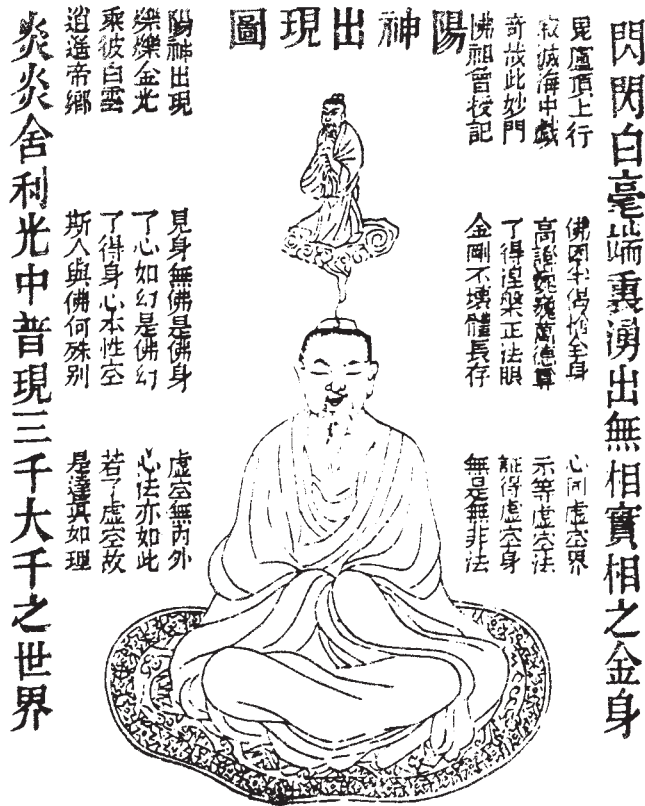 陽神出現圖
閃閃白毫端裏湧出無相實相之金身
毘盧頂上行
寂滅海中戲
奇哉此妙門
佛祖曾授記
佛因半偈捨全身
高證巍巍萬德尊
了得涅槃正法眼
金剛不壞體長存
心同虛空界
示等虛空法
証得虛空身
無是無非法
陽神出現
爍爍金光
乘彼白雲
逍遙帝鄉
見身無佛是佛身
了心如幻是佛幻
了得身心本性空
斯人與佛何殊別
虛空無內外
心法亦如此
若了虛空故
是達真如理
炎炎舍利光中普現三千大千之世界